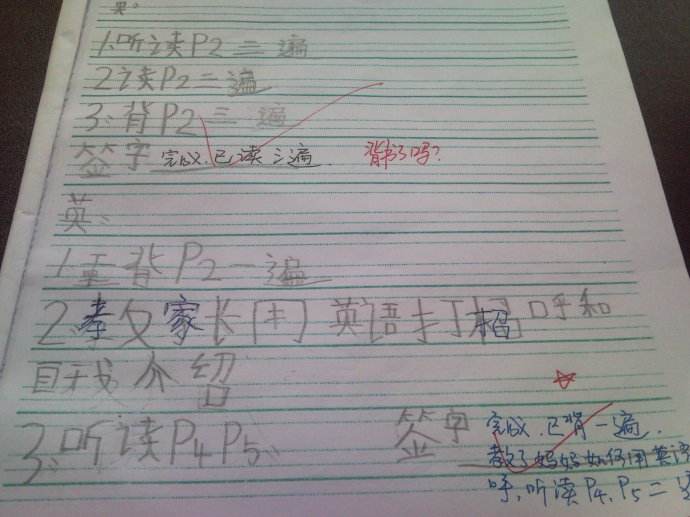 英:
1.听读P2三遍
2读P2二遍
3.背P2三遍
签字 完成.已读三遍. 背书了吗?
英:
1重背P2一遍
2.孝父家长用英语打招呼和
自我介绍
3.听读P4 P5. 签字 完成.已背一遍.
教了妈妈如何用英语
呼,听读P4.P5二